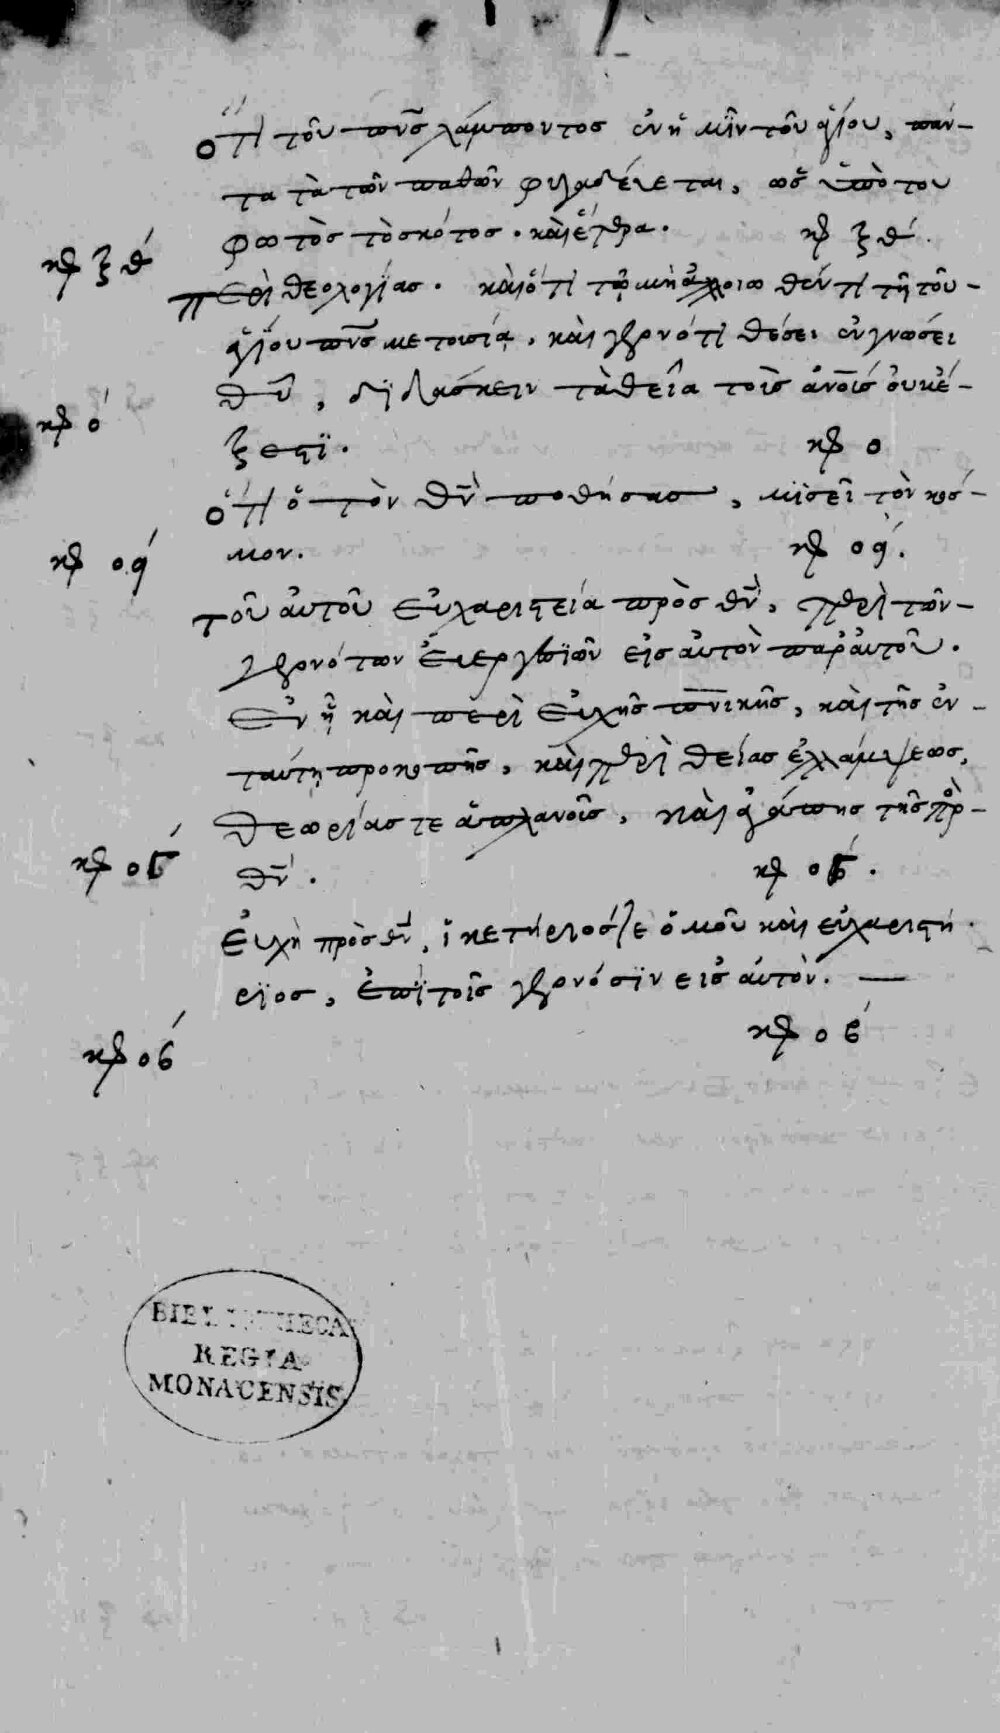 Ὅτι τοῦ πνς λάμποντος ἐν ἡμῖν τοῦ ἁγίου, πάν-
τα τὰ τῶν παθῶν φυγαδεύεται, ὡς ὑπὸ τοῦ
φωτὸς τὸ σκότος. καὶ ἕτερα. κεφ ξθ.
κεφ ξθ
Περὶ θεολογίας. καὶ ὅτι τῷ μὴ ἀλλοιωθέντι τῇ τοῦ
ἁγίου πνς μετουσίᾳ, καὶ γεγονότι θέσει ἐν γνώσει
θυ, διδάσκειν τὰ θεῖα τοῖς ἀνοις οὐκ ἔ-
ξεστι. κεφ ο
κεφ ο
Ὅτι ὁ τὸν θν ποθήσας, μισεῖ τὸν κόσ-
μον. κεφ οα.
κεφ οα
Τοῦ αὐτοῦ εὐχαριστεία πρὸς θν, περὶ τῶν
γεγονότων εὐεργεσιῶν εἰς αὐτὸν παρ αὐτοῦ.
Ἐν ᾗ καὶ περὶ εὐχῆς πνικῆς, καὶ τῆς ἐν
ταύτῃ προκοπῆς, καὶ περὶ θείας ἐλλάμψεως,
θεωρίας τε ἀπλανοῦς, καὶ ἀγάπης τῆς πρὸ-
θν. κεφ οβ.
κεφ οβ
Εὐχὴ πρὸς θν, ἱκετήριός τε ὁμοῦ καὶ εὐχαριστή
ριος, ἐπὶ τοῖς γεγονόσιν εἰς αὐτόν.
κεφ ο
κεφ ο
BIBLIOTHECA
REGIA
MONACENSIS